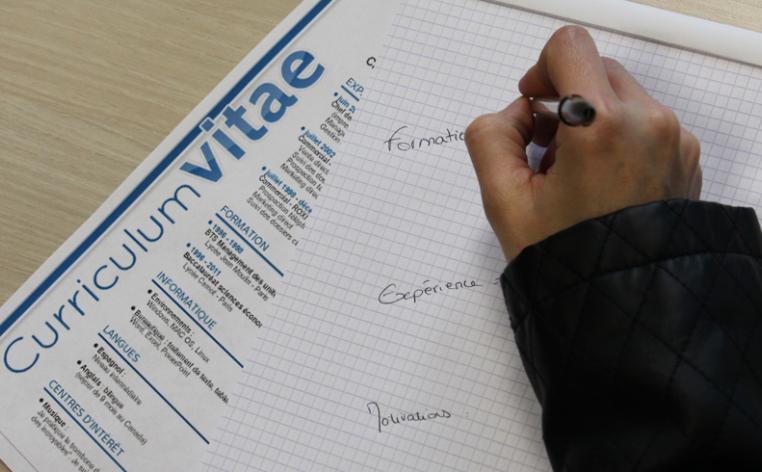 Curriculum vitae
C
EXP
juin 2
Chef de
Manag
Gestion
juillet 2002
Commercial
Vente direc
Suivi des dos
Prospection té
Marketing direc
juillet 1998 - déce
Commercial - ROXU
Prospection téléph
Marketing direct
Suivi des dossiers cl
FORMATION
1996 - 1998
BTS Management des unit
Lycée Jean Moulin - Paris
1996 - 2011
Baccalauréat sciences écono
Lycée Carnot - Paris
INFORMATIQUE
Environnements :
Windows, MAC OS, Linux
Bureautique : traitement de texte, table
Word, Excel, PowerPoint
LANGUES
Espagnol :
Niveau intermédiaire
Anglais : bilingue
(séjour de 9 mois au Canada)
CENTRES D'INTÉRÊT
Musique
Je pratique le trombone d
des Incroyables". Je su
Formatio
Expérience =
Motivations